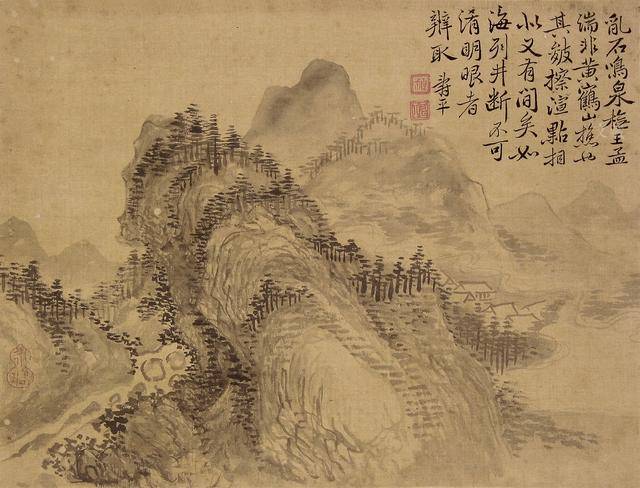 亂石鳴泉橅王孟
端非黄鶴山樵也
其皴擦渲點相
似又有間矣如
海列井断不可
淆明眼者
辨取 壽平